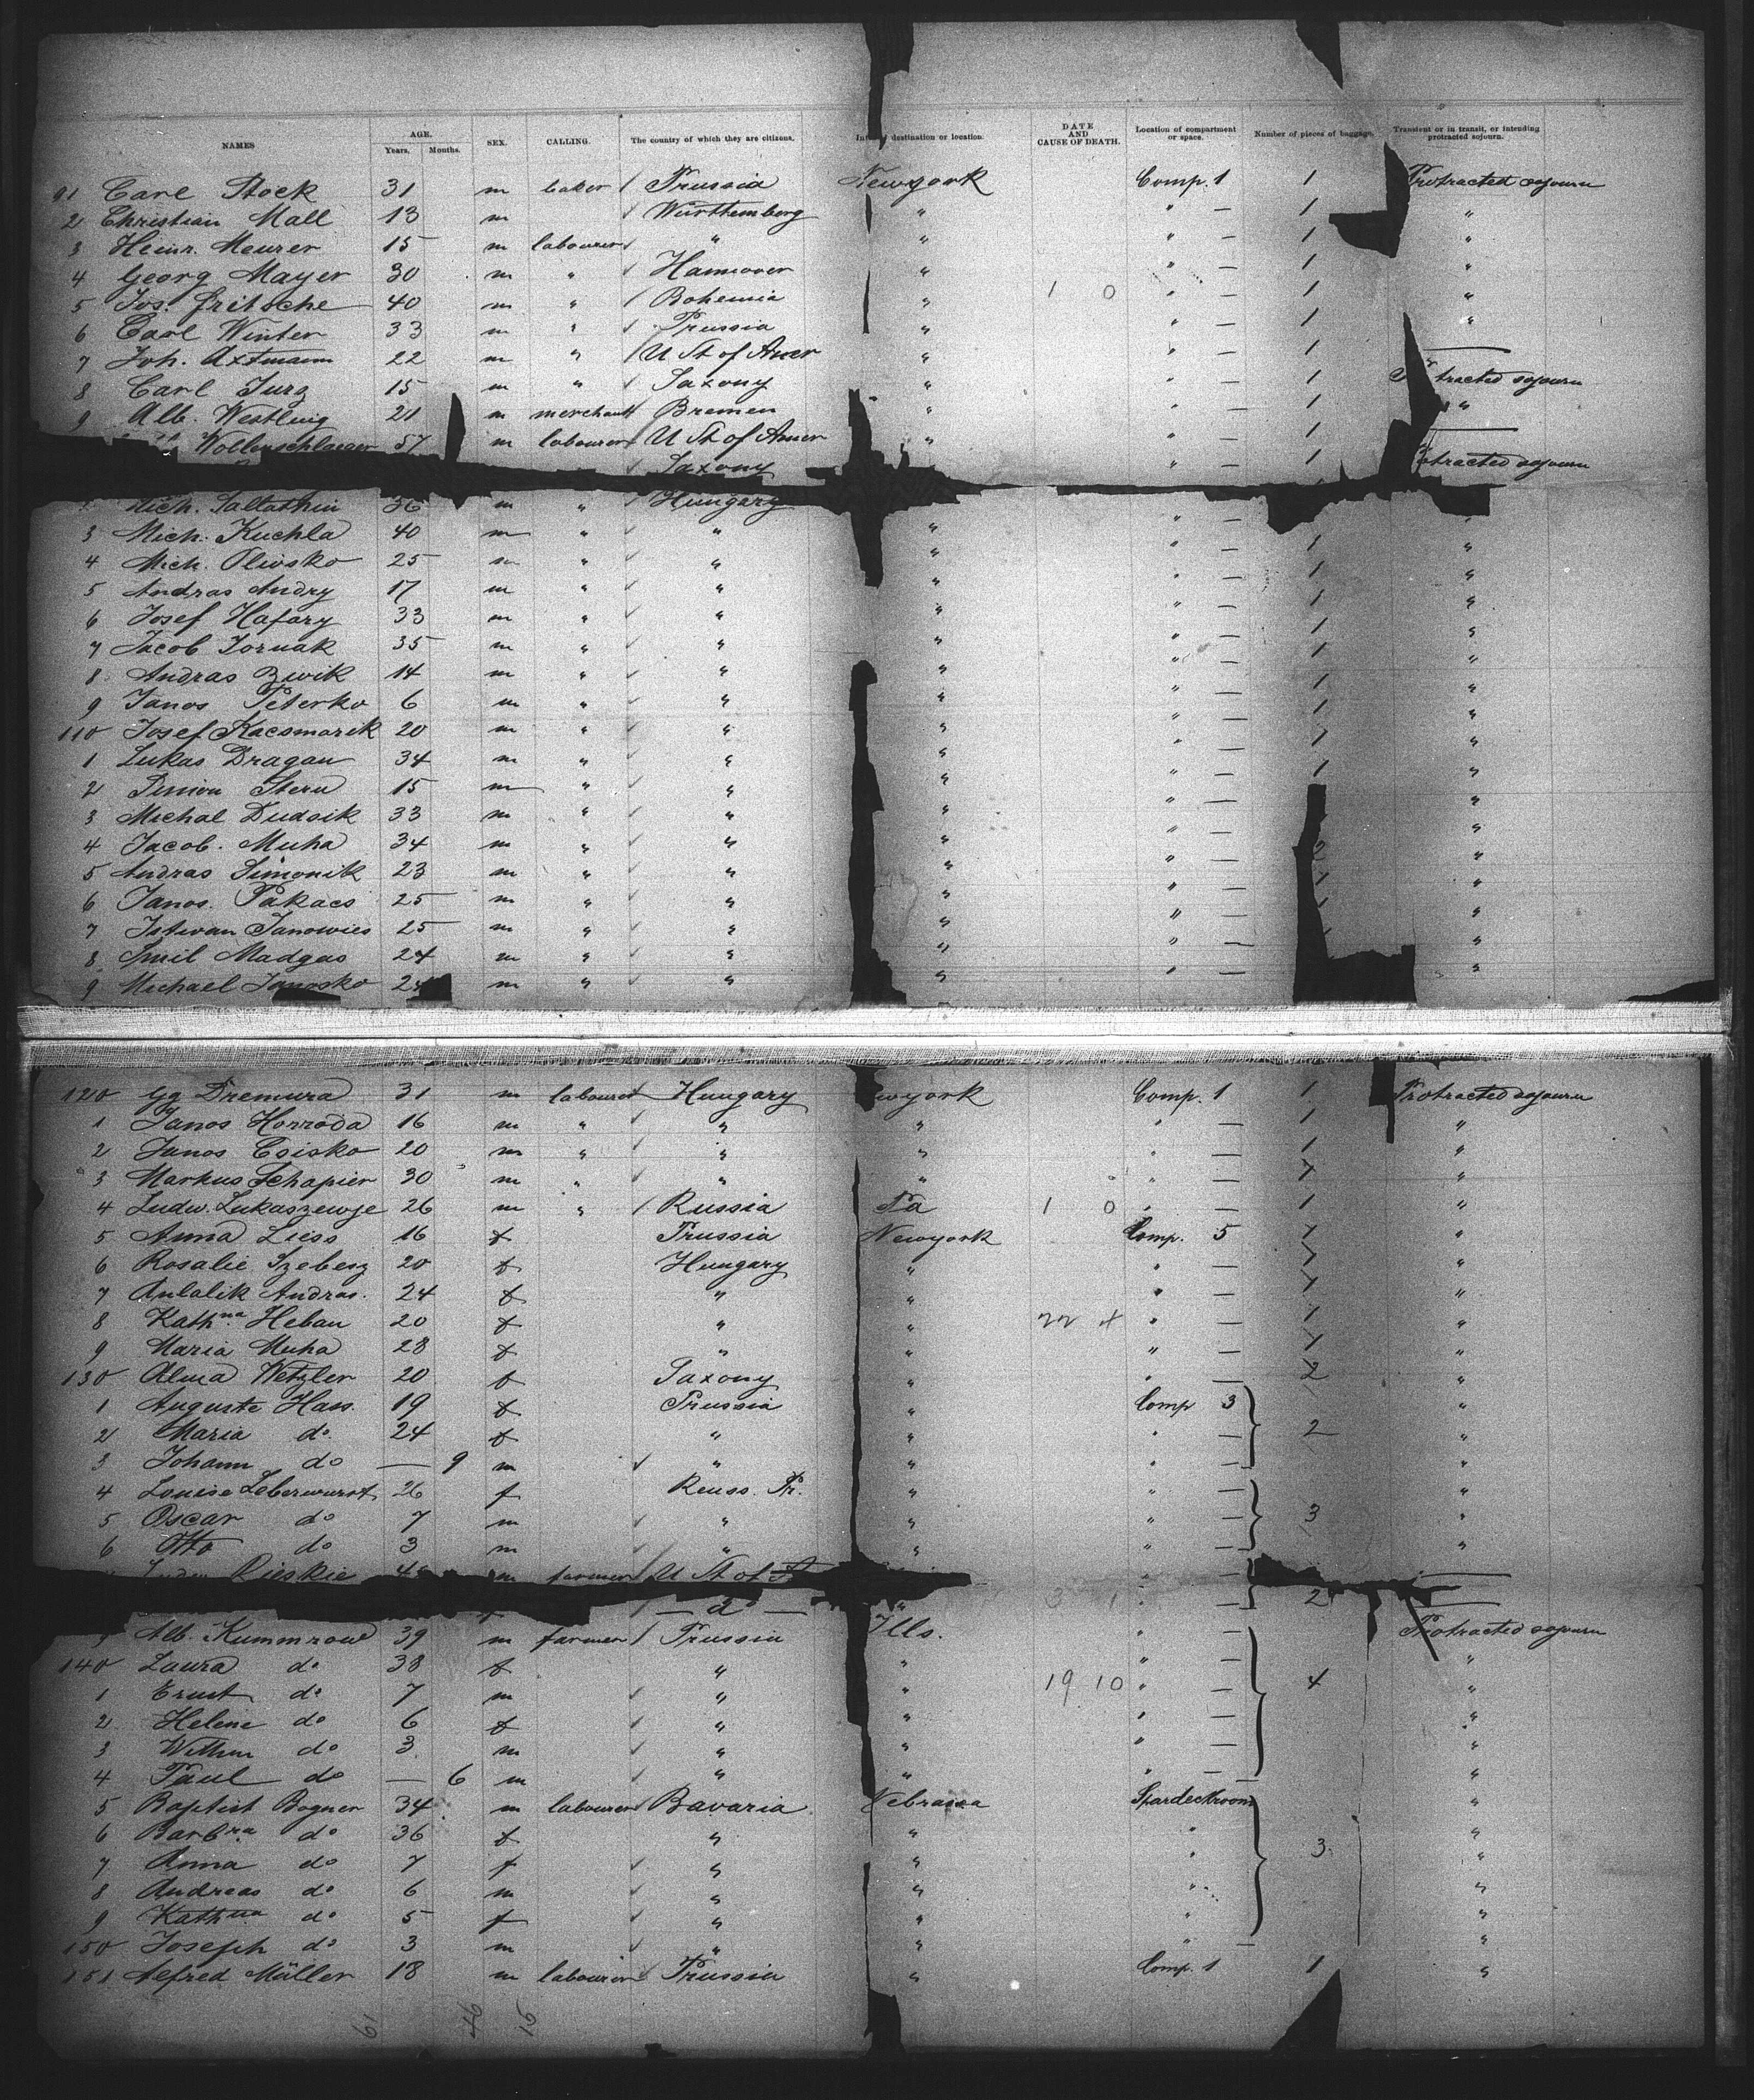 NAMES AGE. Years. Months. SEX. CALLING. The country of which they are citizens. destination or location. DATE AND CAUSE OF DEATH. Location of compartment or space. Number of pieces of baggage. Transient or in transit, or intending protracted sojourn.
91 Carl Stock 31 m baker Prussia Newyork Comp. 1 1 Protracted sojourn
2 Christian Mall 13 m Württemberg " " — 1 "
3 Heinr. Meurer 15 m labourer " " " — 1 "
4 Georg Mayer 30 m " Hannover " " — 1 "
5 Jos. Fritsche 40 m " Bohemia " 1 0 " — 1 "
6 Carl Winter 33 m " Prussia " " — 1 "
7 Joh. Axtmann 22 m " U St of Amer " " — 1 —
8 Carl Jurg 15 m " Saxony " " — 1 tracted sojourn
9 Alb. Westling 21 m merchant Bremen " " — 1 "
Wollenschlaeger 57 m labourer U St of Amer " " — 1 —
Saxony " — 1 tracted sojourn
Mich. Saltathin 36 m " Hungary " —
3 Mich. Kuchla 40 m " " " " — 1 "
4 Mich. Olivsko 25 m " " " " — 1 "
5 Andras Andry 17 m " " " " — 1 "
6 Josef Hafary 33 m " " " " — 1 "
7 Jacob Jornak 35 m " " " " — 1 "
8 Andras Zwik 14 m " " " " — 1 "
9 Janos Peterko 6 m " " " " — 1 "
110 Josef Kacsmarik 20 m " " " " — 1 "
1 Lukas Dragan 34 m " " " " — 1 "
2 Simon Stern 15 m " " " " — "
3 Michal Dudsik 33 m " " " " — "
4 Jacob. Muha 34 m " " " " — 2 "
5 Andras Simonik 23 m " " " " — 1 "
6 Janos. Takacs 25 m " " " " — 1 "
7 Istwan Janowics 25 m " " " " — "
8 Smil Madgas 24 m " " " " — "
9 Michael Janosko m " " " " — "
120 Gg Dremura 31 m labourer Hungary wyork Comp. 1 1 Protracted sojourn
1 Janos Horroda 16 m " " " " — 1 "
2 Janos Csisko 20 m " " " " — 1 "
3 Markus Schapier 30 m " " " " — 1 "
4 Ludw. Lukaszewje 26 m " Russia Pa 1 0 " — 1 "
5 Anna Liess 16 f Prussia Newyork Comp. 5 1 "
6 Rosalie Szebesz 20 f Hungary " " — 1 "
7 Anlalik Andras. 24 f " " " — 1 "
8 Kathna Heban 20 f " " 22 4 " — 1 "
9 Maria Muha 28 f " " " — 1 "
130 Alma Wetzler 20 f Saxony " " — 2 "
1 Auguste Hass. 19 f Prussia " Comp 3 "
2 Maria do. 24 f " " " — 2 "
3 Johann do — 9 m " " " — "
4 Louise Leberwurst 26 f Reuss. Pr. " " — "
5 Oscar do 7 m " " " — 3 "
6 Otto do 3 m " " " — "
Rieskie m farmer U St of " — —
— do — " 3 1 " — 2 —
9 Alb. Kummrow 39 m farmer Prussia Ills. " — Protracted sojourn
140 Laura do 38 f " " " — "
1 Ernst do 7 m " " 19 10 " — 4 "
2 Helene do 6 f " " " — "
3 Wilhm do 3 m " " " — "
4 Paul do — 6 m " " " — "
5 Baptist Bogner 34 m labourer Bavaria Nebraska Spardeckroom "
6 Barbra do 36 f " " " "
7 Anna do 7 f " " " 3 "
8 Andreas do 6 m " " " "
9 Kathna do 5 f " " " "
150 Joseph do 3 m " " " — "
151 Alfred Müller 18 m labourer Prussia " Comp. 1 1 "
61 46 15